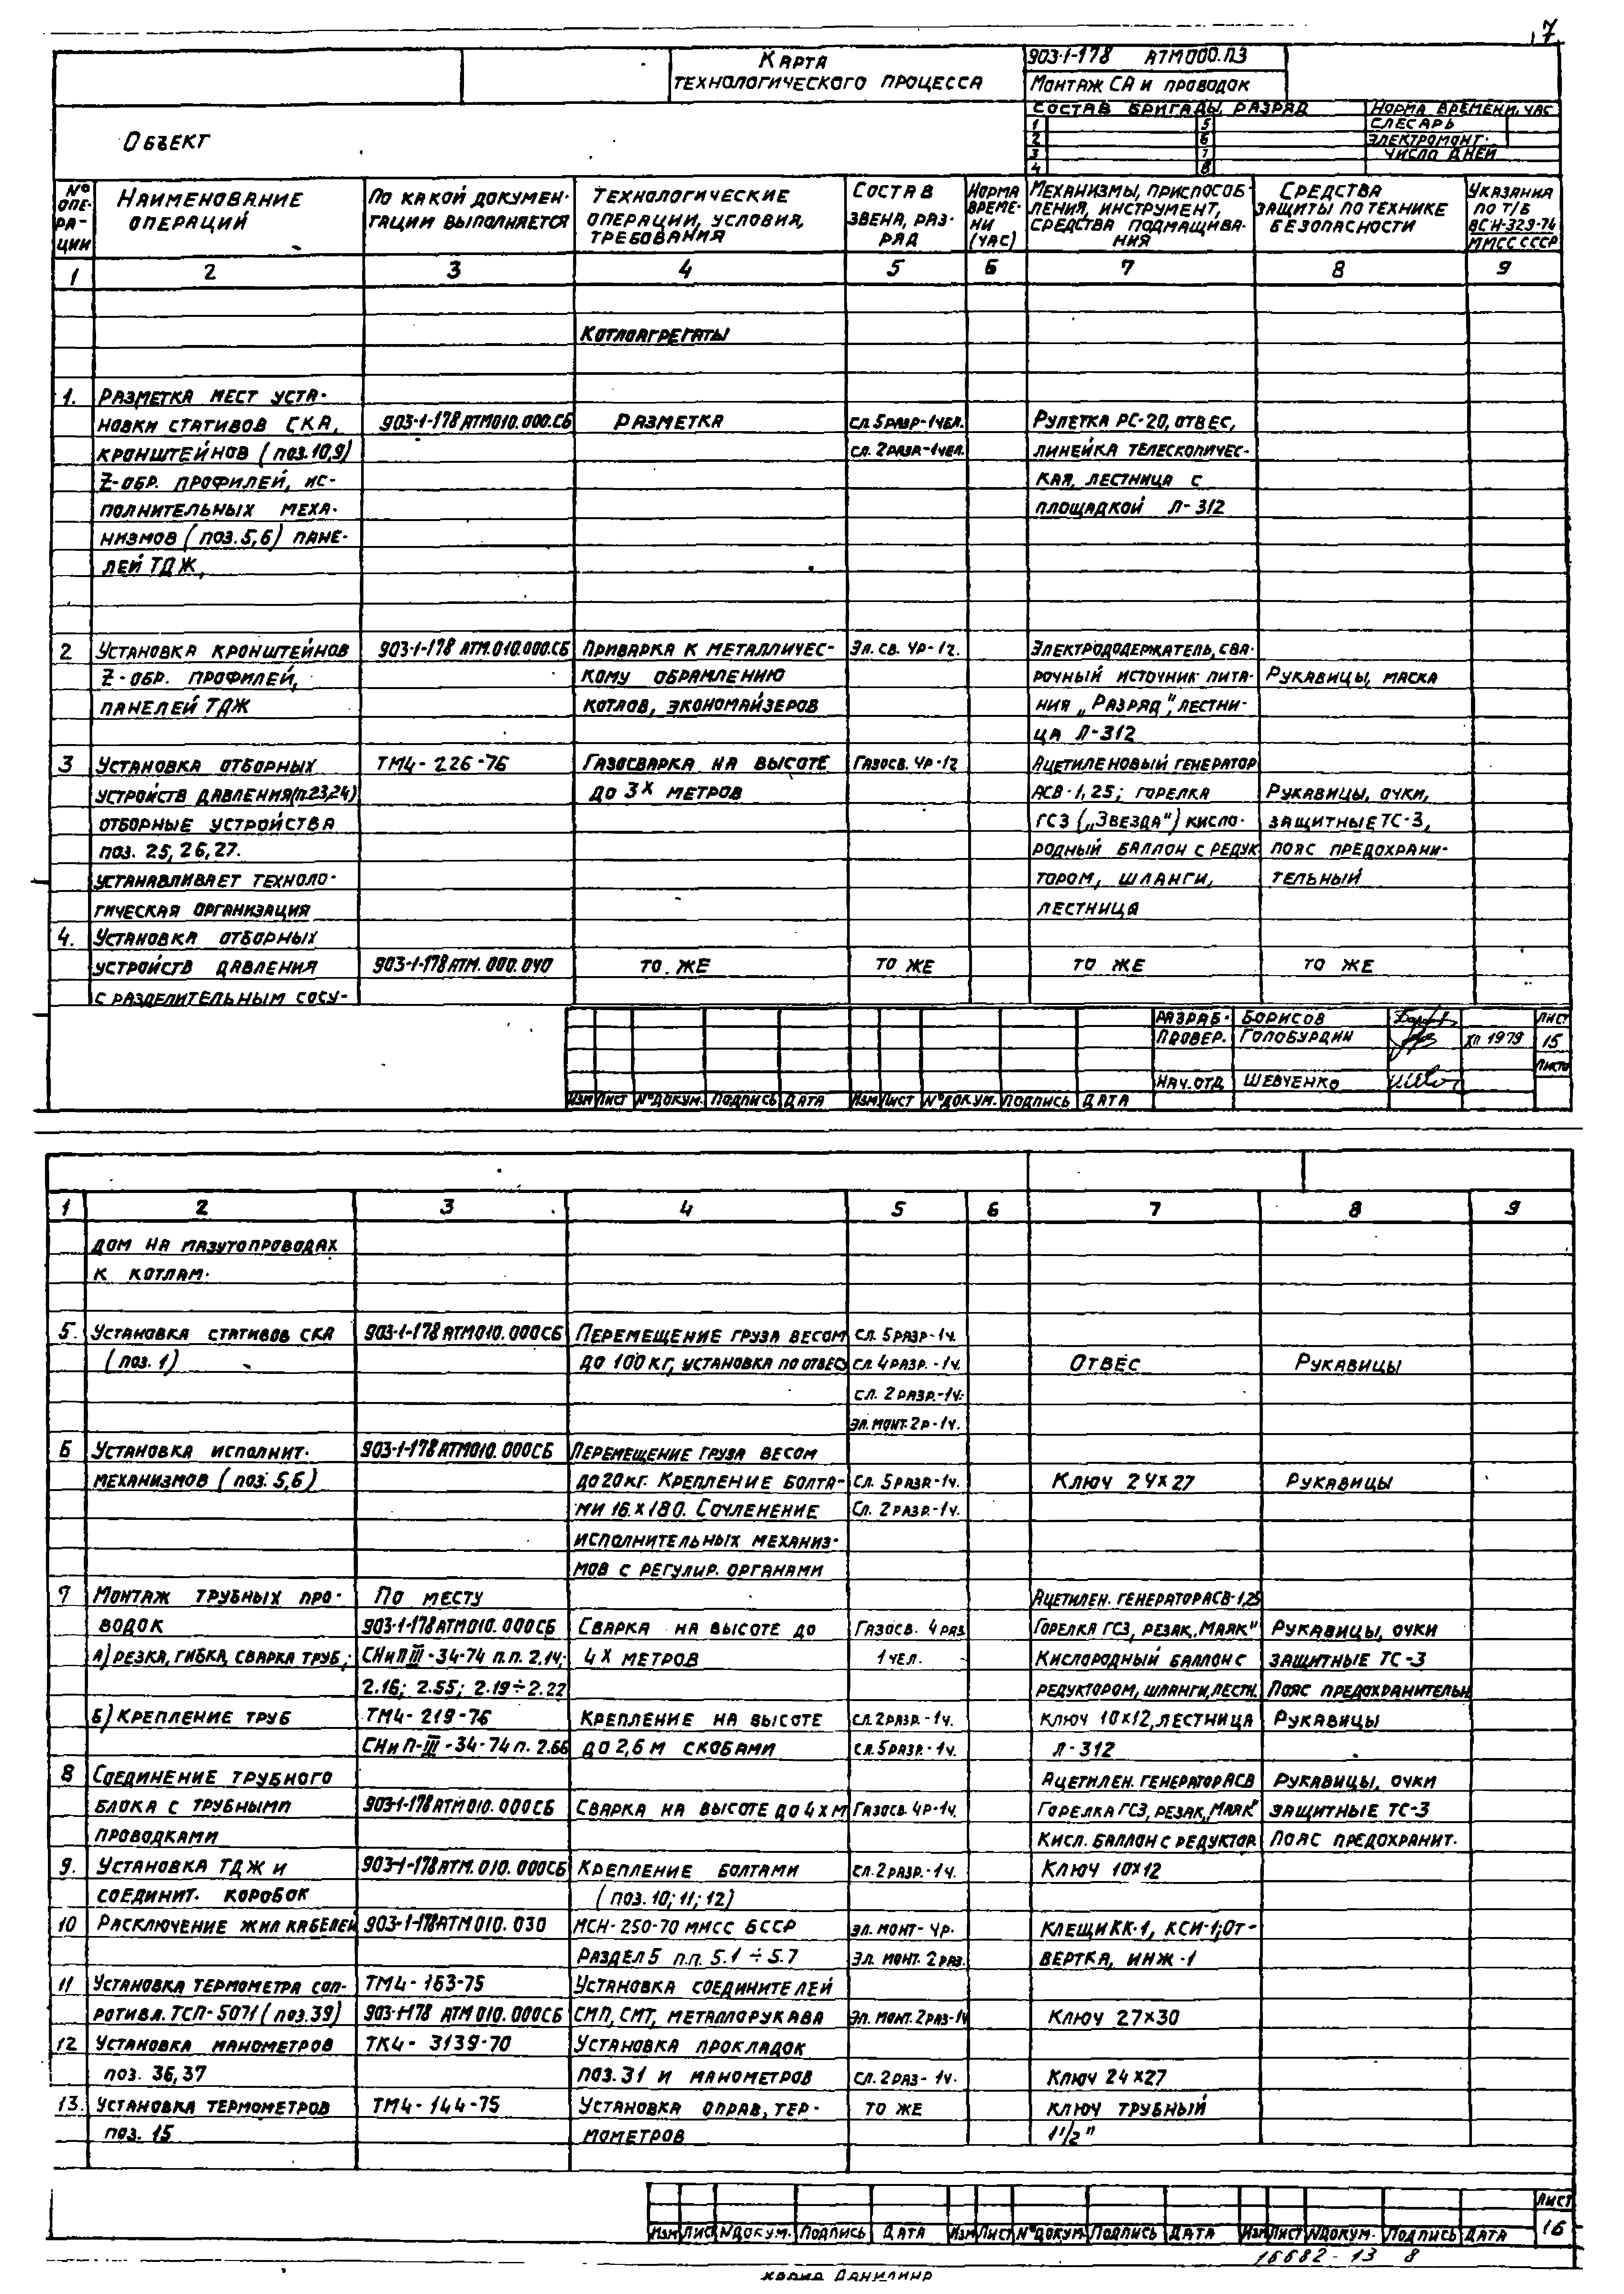 7
Карта
технологического процесса
903-1-178 АТМ000.ПЗ
Монтаж СА и проводок
Объект
Состав бригады, разряд
Норма времени, час
1 5 Слесарь
2 6 Электромонт.
3 7 Число дней
4 8
№ опе-ра-ции
Наименование операций
По какой докумен-тации выполняется
Технологические операции, условия, требования
Состав звена, раз-ряд
Норма време-ни (час)
Механизмы, приспособ-ления, инструмент, средства подмащива-ния
Средства защиты по технике безопасности
Указания по т/б ВСН-329-74 ММСС СССР
1 2 3 4 5 6 7 8 9
Котлоагрегаты
1. Разметка мест уста-
новки стативов СКА, 903-1-178 АТМ010.000.СБ Разметка Сл. 5 разр-1чел. Рулетка РС-20, отвес,
кронштейнов (поз. 10,9) сл. 2 разр-1чел. линейка телескопичес-
Z-обр. профилей, ис- кая, лестница с
полнительных меха- площадкой Л-312
низмов (поз. 5,6) пане-
лей ТДЖ,
2 Установка кронштейнов 903-1-178 АТМ.010.000.СБ Приварка к металличес- Эл. св. 4р-1г. Электрододержатель, сва-
Z-обр. профилей, кому обрамлению рочный источник пита- Рукавицы, маска
панелей ТДЖ котлов, экономайзеров ния „Разряд", лестни-
ца Л-312
3 Установка отборных ТМ4-226-76 Газосварка на высоте Газосв. 4р-1г Ацетиленовый генератор
устройств давления (п.23,24) до 3х метров АСВ-1,25; горелка Рукавицы, очки,
отборные устройства ГС3 („Звезда") кисло- защитные ТС-3,
поз. 25, 26, 27. родный баллон с редук пояс предохрани-
устанавливает техноло- тором, шланги, тельный
гическая организация лестница
4. Установка отборных
устройств давления 903-1-178 АТМ.000.040 то же то же то же то же
с разделительным сосу-
Разраб. Борисов Лист
Провер. Голобурдин XII 1979 15
Листов
Нач. отд Шевченко
Изм Лист №докум. Подпись Дата Изм Лист №докум. Подпись Дата
1 2 3 4 5 6 7 8 9
дом на мазутопроводах
к котлам.
5. Установка стативов СКА 903-1-178 АТМ010.000СБ Перемещение груза весом сл. 5разр-1ч.
(поз. 1) до 100 кг, установка по отвесу сл. 4 разр.-1ч. Отвес Рукавицы
сл. 2 разр.-1ч.
эл. монт. 2р-1ч.
6 Установка исполнит. 903-1-178 АТМ010.000СБ Перемещение груза весом
механизмов (поз. 5,6) до 20 кг. Крепление болта- Сл. 5разр-1ч. Ключ 24х27 Рукавицы
ми 16х180. Сочленение Сл. 2 разр.-1ч.
исполнительных механиз-
мов с регулир. органами
7 Монтаж трубных про- По месту Ацетилен. генератор АСВ-1,25
водок 903-1-178 АТМ010.000СБ Сварка на высоте до Газосв. 4 раз. Горелка ГС3, резак „Маяк" Рукавицы, очки
а) резка, гибка, сварка труб; СНиП III-34-74 п.п. 2.14; 4х метров 1 чел. Кислородный баллон с защитные ТС-3
2.16; 2.55; 2.19÷2.22 редуктором, шланги, лестн. Пояс предохранительн
б) крепление труб ТМ4-219-76 Крепление на высоте сл. 2разр.-1ч. ключ 10х12, лестница Рукавицы
СНиП-III-34-74 п. 2.66 до 2,6 м скобами сл. 5разр.-1ч. Л-312
8 Соединение трубного Ацетилен. генератор АСВ Рукавицы, очки
блока с трубными 903-1-178 АТМ010.000СБ Сварка на высоте до 4х м Газосв. 4р-1ч. Горелка ГС3, резак „Маяк" защитные ТС-3
проводками Кисл. баллон с редуктор. Пояс предохранит.
9. Установка ТДЖ и 903-1-178 АТМ.010.000СБ Крепление болтами сл. 2разр.-1ч. Ключ 10х12
соединит. коробок (поз. 10; 11; 12)
10 Расключение жил кабелей 903-1-178 АТМ010.030 МСН-250-70 ММСС БССР эл. монт-4р. Клещи КК-1, КСИ-1, От-
раздел 5 п.п. 5.1÷5.7 эл. монт. 2 раз. вертка, инж-1
11 Установка термометра соп- ТМ4-163-75 Установка соединителей
ротивл. ТСП-5071 (поз. 39) 903-1-178 АТМ010.000СБ СМП, СМТ, металлорукава эл. монт. 2раз-1ч Ключ 27х30
12 Установка манометров ТК4-3139-70 Установка прокладок
поз. 36, 37 поз. 31 и манометров сл. 2 раз-1ч. Ключ 24х27
13. Установка термометров ТМ4-144-75 Установка оправ, тер- то же ключ трубный
поз. 15 мометров 1 1/2"
Изм Лист №докум. Подпись Дата Изм Лист №докум. Подпись Дата Изм Лист №докум. Подпись Дата
Лист
16
16682-13 8